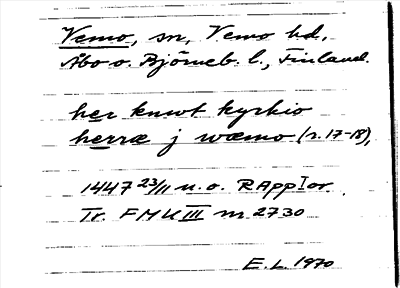 Vemo, sn, Vemo hd,
Åbo o. Björneb. l., Finland.
her knwt kyrkio
herræ j wæmo (r. 17-18),
1447 23/11 u.o. RAppIor.
Tr. FMU III nr 2730
E.L. 1970